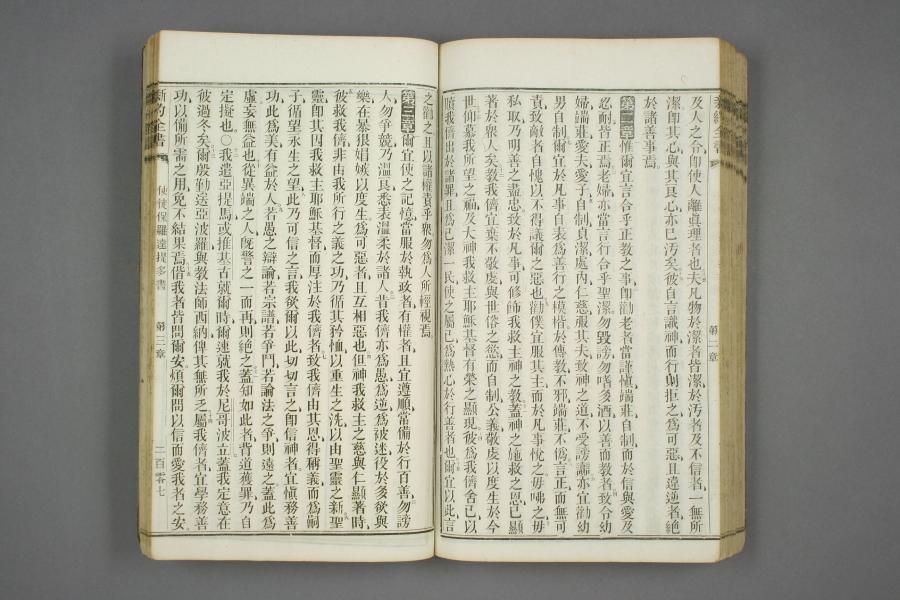 及人之命即使人離眞理者也夫凡物於潔者皆潔於汚者及不信者一無所
潔卽其心與其良心亦巳汚矣彼自言識神而行則拒之爲可惡且違逆者絕
於諸善事焉
第二章惟爾宜言合乎正教之事卽勸老者當謹愼端莊自制而於信與愛及
忍耐皆正焉老婦亦當言行合乎聖潔勿毀謗勿嗜多酒以善而教者致令幼
婦端莊愛夫愛子自制貞潔處內仁慈服其夫致神之道不受謗讟亦宜勸幼
男自制爾宜於凡事自表爲善行之模楷於傳教不邪端莊不僞言正而無可
責致敵者自愧以不得議爾之惡也勸僕宜服其主而於凡事悅之毋咈之毋
私取乃明善之盡忠致於凡事可修飾我救主神之教蓋神之施救之恩已顯
著於衆人矣教我儕宜棄不敬虔與世俗之慾而自制公義敬虔以度生於今
世仰慕我所望之福及大神我救主耶穌基督有榮之顯現彼爲我儕舍己以
贖我儕出於諸罪且爲已潔一民使之屬已爲熱心於行善者也爾宜以此言
之勸之且以諸權責乎衆勿爲人所輕視焉
第三章爾宜使之記憶當服於執政者有權者且宜遵順常備於行百善勿謗
人勿爭競乃溫良悉表溫柔於諸人昔我儕亦爲愚爲逆爲被迷役於多欲與
樂在暴狠娼嫉以度生爲可惡者且互相惡也但神我救主之慈與仁顯著時
彼救我儕非由我所行之義之功乃循其矜恤以重生之洗以由聖靈之新聖
靈卽其因我救主耶穌基督而厚注於我儕者致我儕由其恩得稱義而爲嗣
子循望永生之望此乃可信之言我欲爾以此切切言之卽信神者宜愼務善
功此爲美有益於人若愚之辯論若宗譜若爭鬥若論法之爭則遠之蓋此爲
虛妄無益也從異端之人旣警之一而再則絕之蓋知如此者背道獲罪乃自
定擬也○我遣亞提馬或推基古就爾時爾速就我於尼哥波立蓋我定意在
彼過冬矣爾殷勤送亞波羅與教法師西納俾其無所乏屬我儕者宜學務善
功以備所需之用免不結果焉偕我者皆問爾安煩爾問以信而愛我者之安
新約全書
使徒保羅達提多書
第三章
二百零七
新約全書
第二章